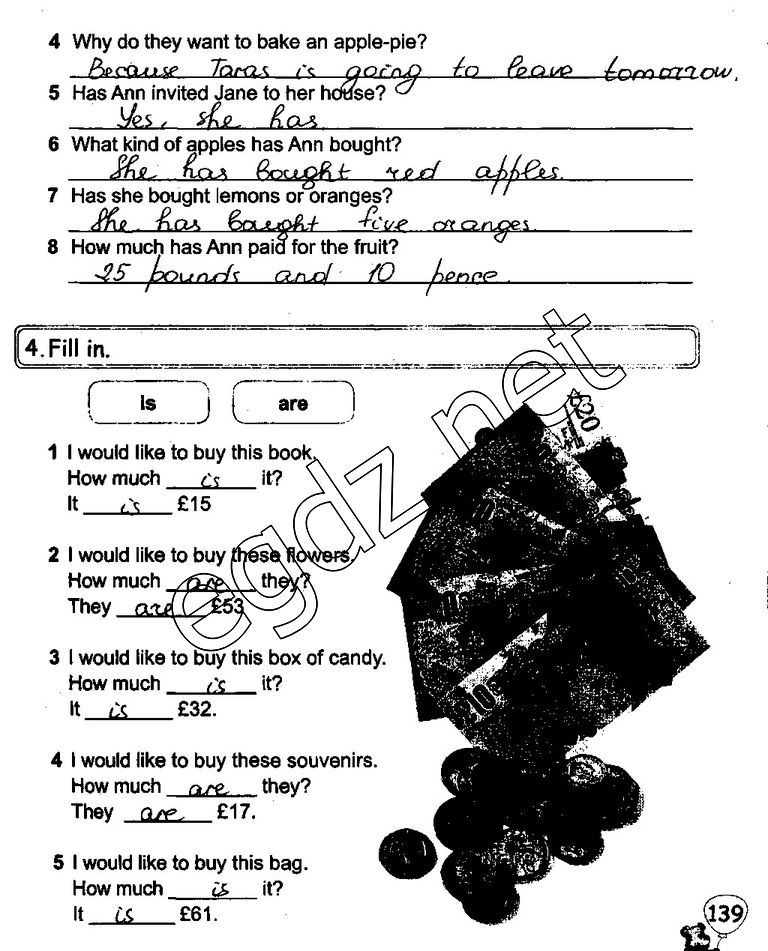 4 Why do they want to bake an apple-pie?
Because Taras is going to leave tomorrow.
5 Has Ann invited Jane to her house?
Yes, she has
6 What kind of apples has Ann bought?
She has bought red apples.
7 Has she bought lemons or oranges?
She has bought five oranges.
8 How much has Ann paid for the fruit?
25 pounds and 10 pence.
4. Fill in.
is are
1 I would like to buy this book.
How much is it?
It is £15
2 I would like to buy these flowers.
How much are they?
They are £53
3 I would like to buy this box of candy.
How much is it?
It is £32.
4 I would like to buy these souvenirs.
How much are they?
They are £17.
5 I would like to buy this bag.
How much is it?
It is £61.
egdz.net
£20
£10
139